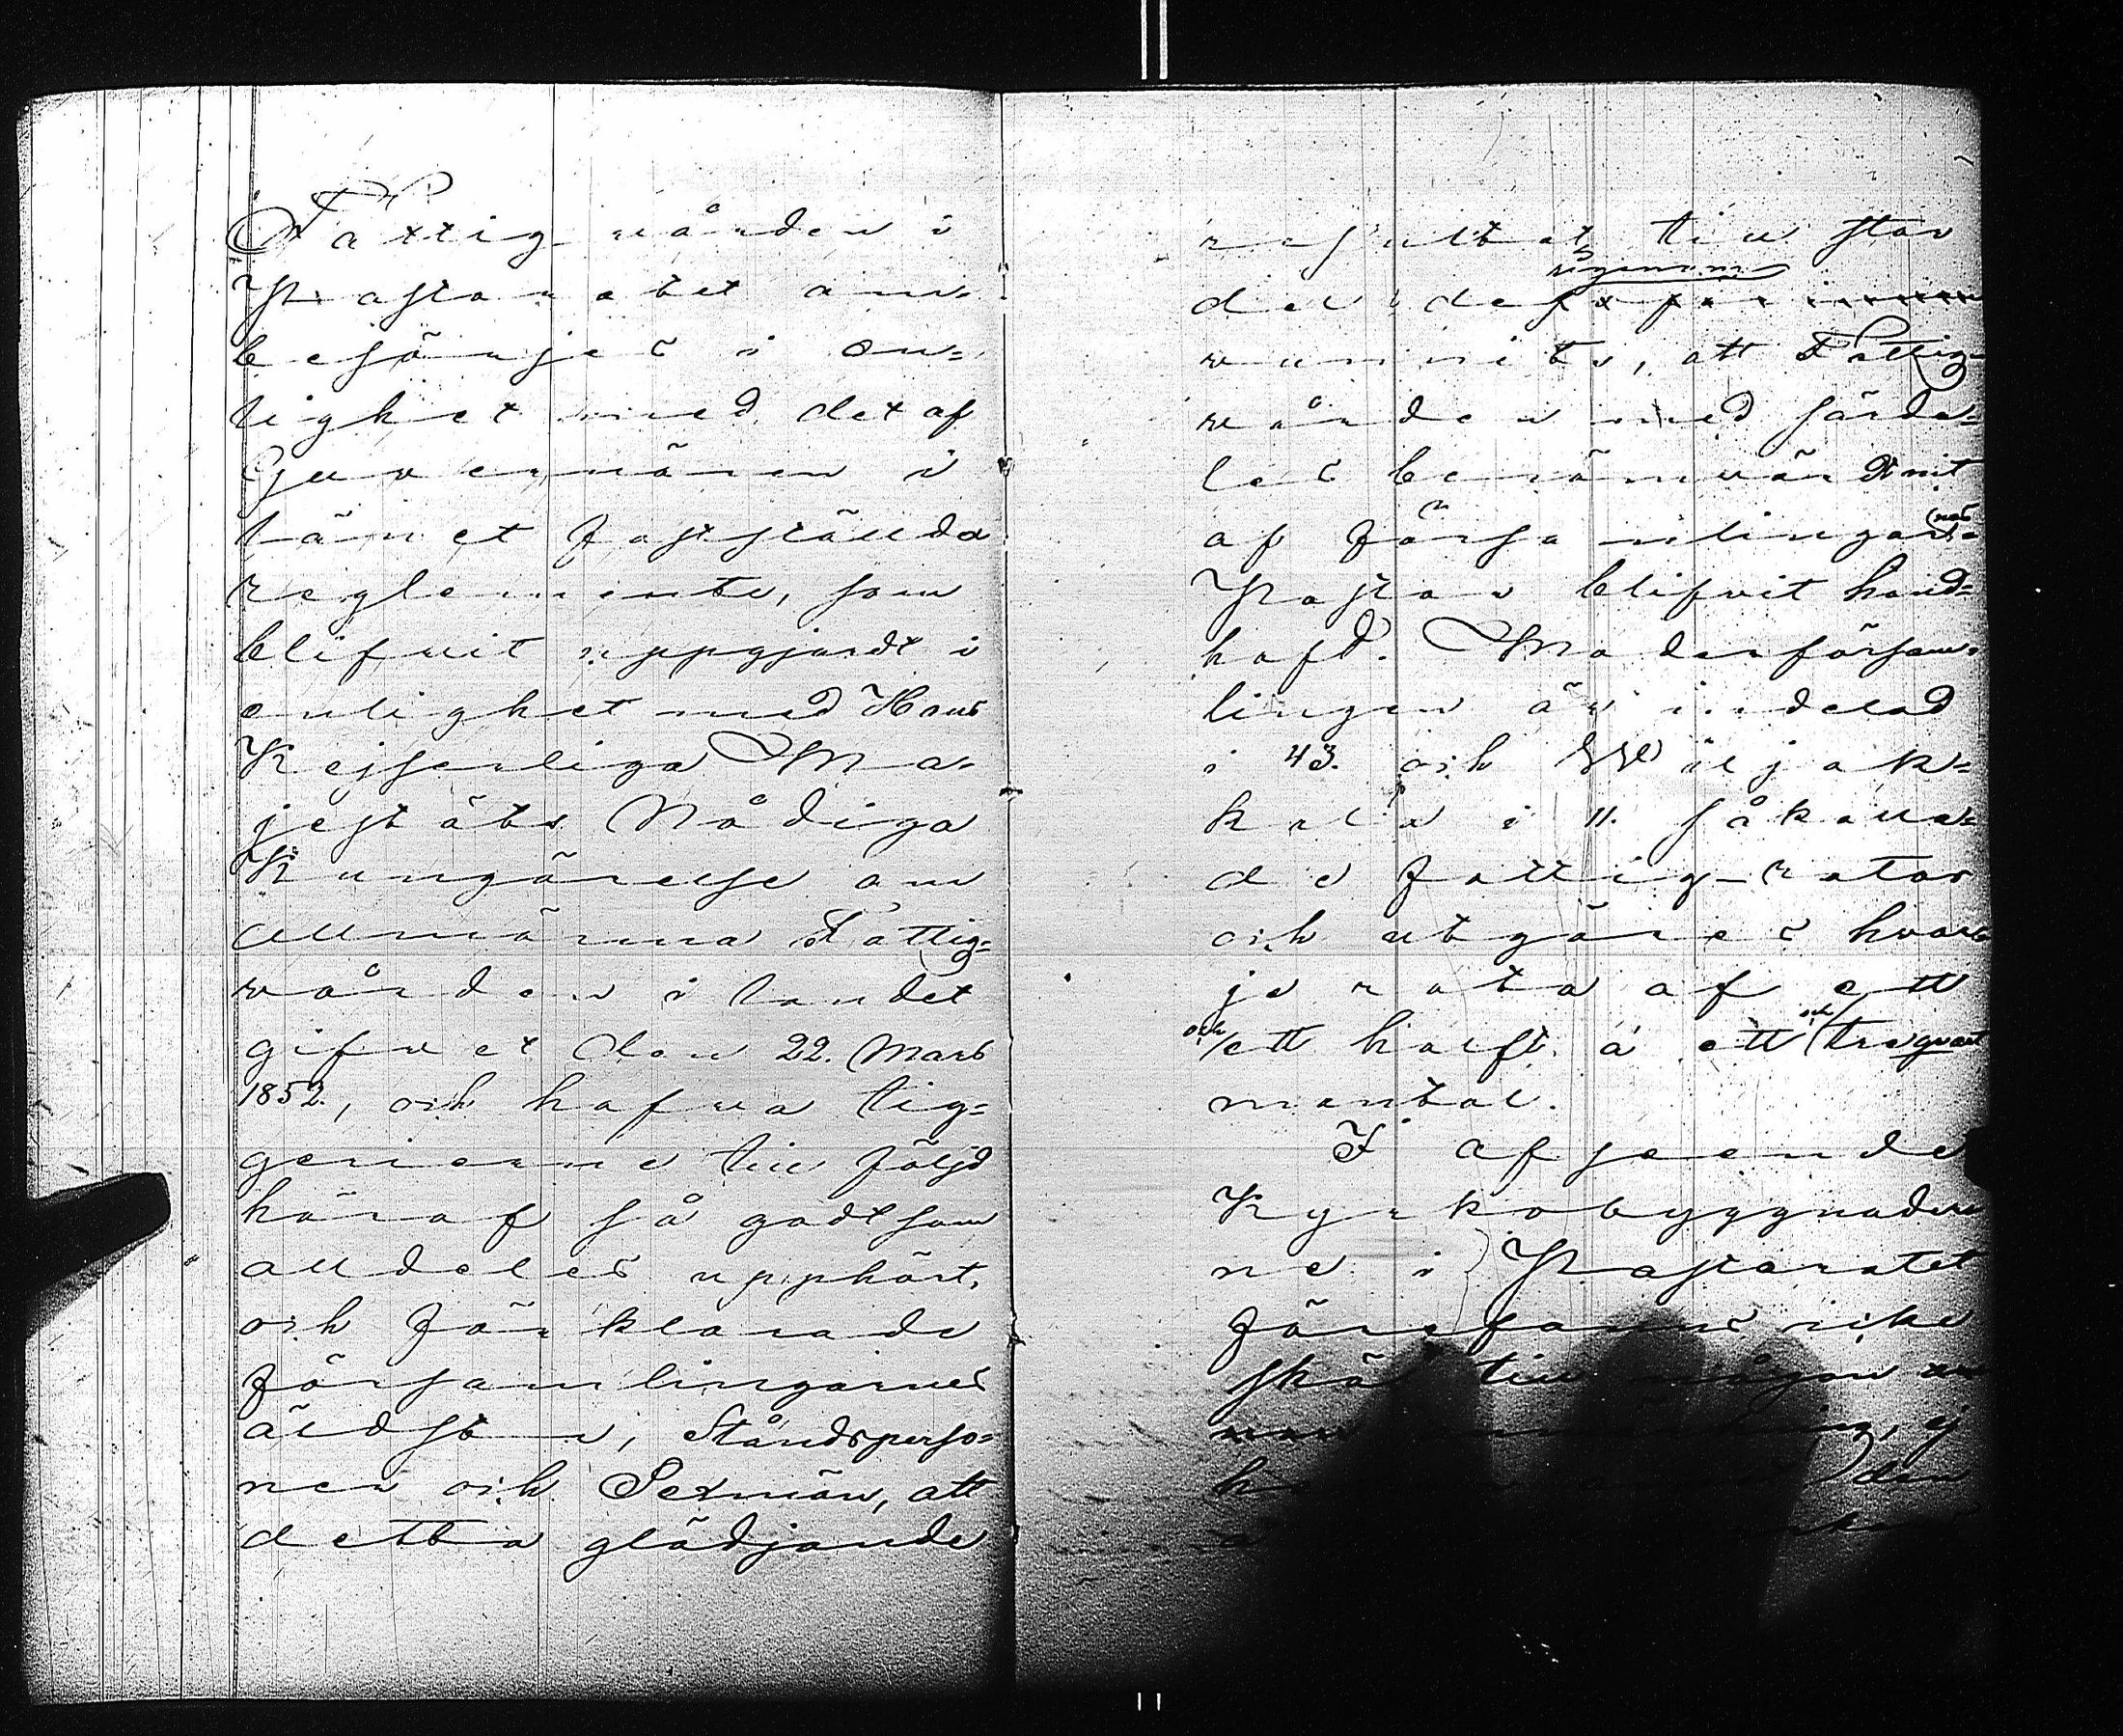 Fattigvården i
Pastoratet om-
besörjes i en-
lighet med det af
Guvernören i
länet faststälda
reglemente, som
blifvit uppgjordt i
enlighet med Hans
Kejserliga Ma-
jestäts Nådiga
Kungörelse om
allmänna Fattig-
vården i landet
gifvet den 22. Mars
1852, och hafva tig-
gerierne till följd
häraf så godt som
alldeles upphört,
och förklarade
församlingarnes
äldste, Ståndsperso-
ner och Sexmän, att
detta glädjande
resultat till stor
del derigenom
vunnits, att Fattig-
vården med särde-
les berömvärdt nit
af Församlingarnes
Pastor blifvit hand-
hafd. Moderförsam-
lingen är indelad
i 43. och Wiljak-
kala i 11. såkalla-
de fattig-rotar
och utgöres hvar-
je rota af ett
och ett halft á ett och tre qvart
mantal.
I afseende
Kyrkobyggnader-
ne i Pastoratet
förefanns icke
skäl till någon
ej
den